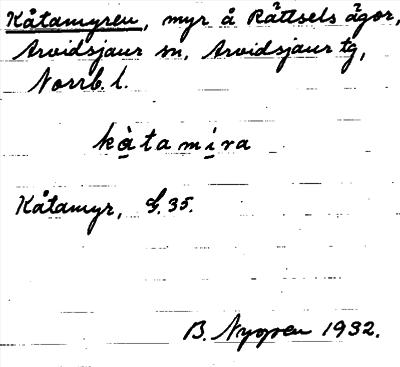 Kåtamyren, myr å Råttsels ägor,
Arvidsjaur sn, Arvidsjaur tg,
Norrb. l.
kȧtamira
Kåtamyr, G. 35.
B. Nygren 1932.